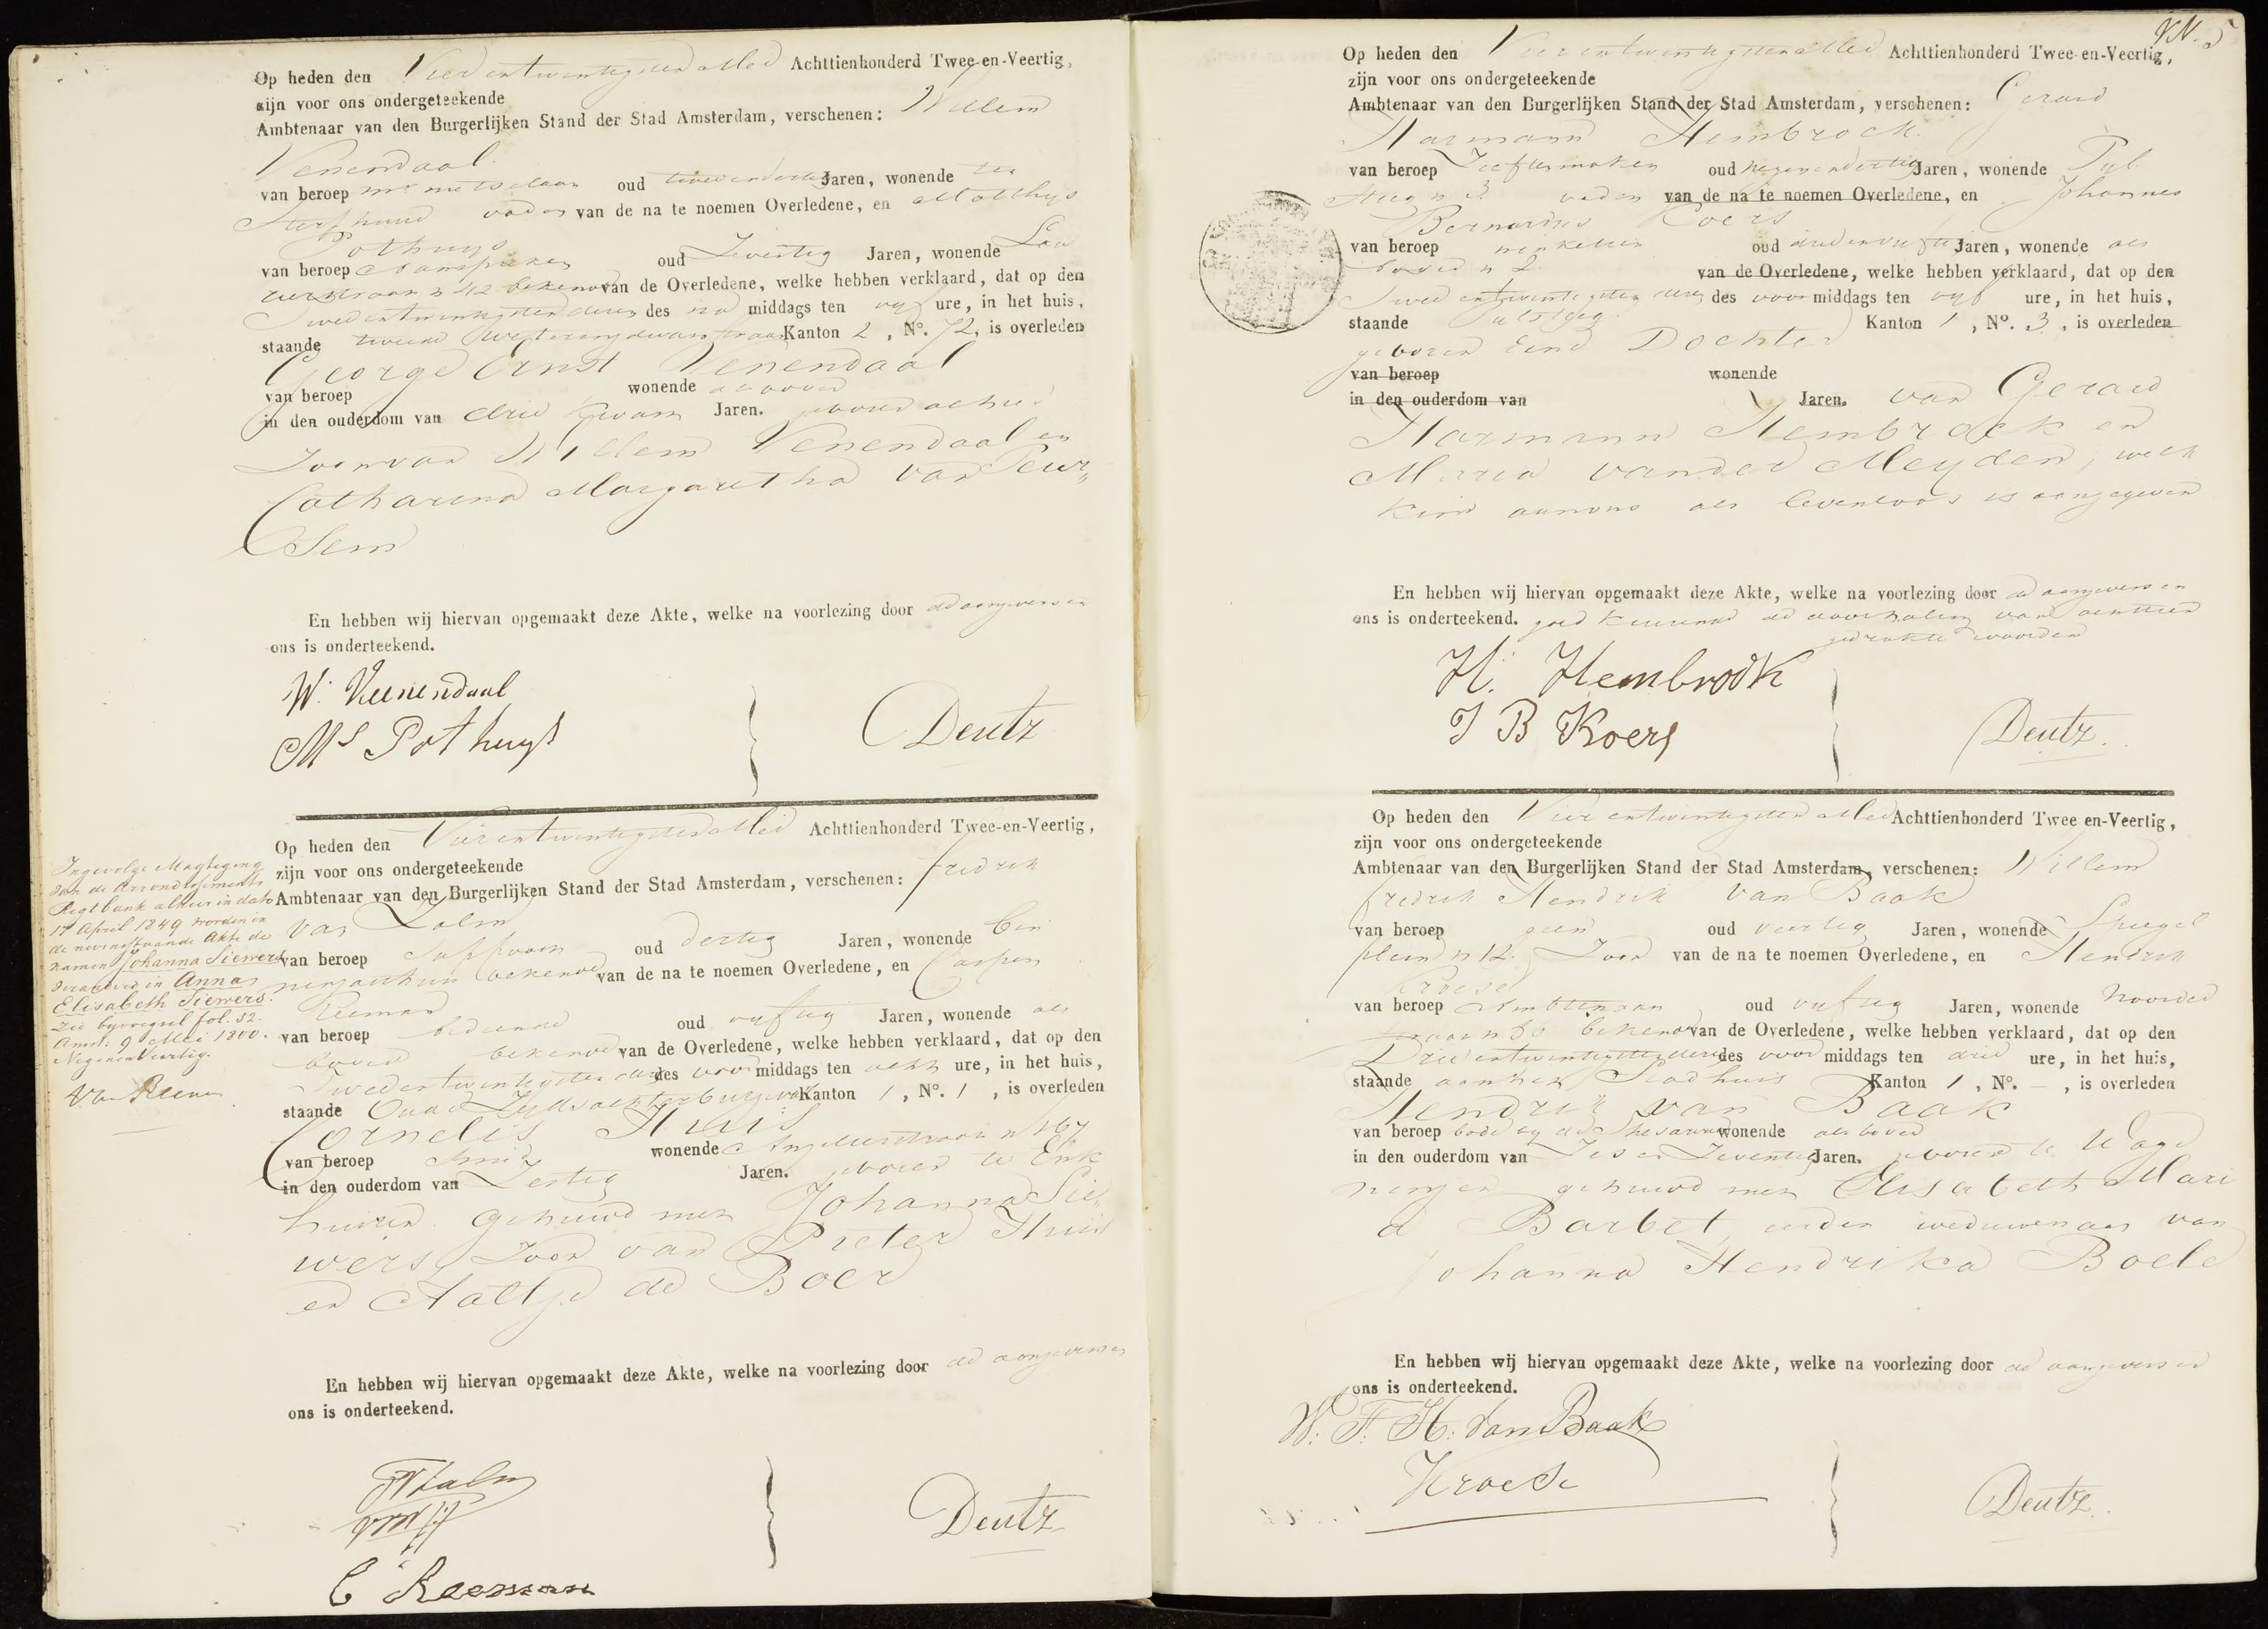 Op heden den Vier entwintigsten Mei Achttienhonderd Twee-en-Veertig,
zijn voor ons ondergeteekende
Ambtenaar van den Burgerlijken Stand der Stad Amsterdam, verschenen: Willem
Venendaal
van beroep mr metselaar oud twee en dertig Jaren, wonende ten
Sterfhuize vader van de na te noemen Overledene, en Matthys
Pothuys
van beroep aanspreker oud Zeventig Jaren, wonende Lau
rierstraat n 42 bekende van de Overledene, welke hebben verklaard, dat op den
Twee entwintigsten dezer des na middags ten vyf ure, in het huis,
staande tweede Weteringdwarsstraat Kanton 2, No. 72, is overleden
George Ernst Venendaal
van beroep wonende als boven
in den ouderdom van drie kwart Jaren. geboren alhier
Zoon van Willem Venendaal en
Catharina Margaretha van Peur„
Sem
En hebben wij hiervan opgemaakt deze Akte, welke na voorlezing door de aangevers en
ons is onderteekend.
W. Veenendaal
Ms Pothuys
Deutz
Op heden den Vier entwintigsten Mei Achttienhonderd Twee-en-Veertig,
zijn voor ons ondergeteekende
Ambtenaar van den Burgerlijken Stand der Stad Amsterdam, verschenen: fredrik
van Zalm
van beroep Suppoost oud dertig Jaren, wonende Bin
nengasthuis bekende van de na te noemen Overledene, en Casper
Reeman
van beroep bediende oud vyftig Jaren, wonende als
boven bekende van de Overledene, welke hebben verklaard, dat op den
Twee entwintigsten dezer des voor middags ten acht ure, in het huis,
staande Oude Zydsachterburgwal Kanton 1, No. 1, is overleden
Cornelis Huis
van beroep Smid wonende Angeliersstraat n 167
in den ouderdom van Zestig Jaren. geboren te Enk
huizen. gehuwd met Johanna Sie„
wers, Zoon van Pieter Huis
en Aaltje de Boer
En hebben wij hiervan opgemaakt deze Akte, welke na voorlezing door de aangevers en
ons is onderteekend.
C Reeman
Deutz
Ingevolge Magtiging
van de Arrondissements
Regtbank alhier in dato
17 April 1849 worden in
de nevenstaande Akte de
namen Johanna Siewers
veranderd in Anna
Elisabeth Siewers.
Zie byvoegsel fol. 52.
Amst. 9 Mei 1800.
Negen en Veertig.
Van Reenen
Op heden den Vier entwintigsten Mei Achttienhonderd Twee-en-Veertig,
zijn voor ons ondergeteekende
Ambtenaar van den Burgerlijken Stand der Stad Amsterdam, verschenen: Gerard
Harmann Hembrock
van beroep oud negenendertig Jaren, wonende Pyl
steeg n 3 vader van de na te noemen Overledene, en Johannes
Bernardus Coers
van beroep winkelier oud drieenvyftig Jaren, wonende als
boven n 2 van de Overledene, welke hebben verklaard, dat op den
Twee entwintigsten dezer des voor middags ten vyf ure, in het huis,
staande Pylsteeg Kanton 1, No. 3, is overleden
geboren Eene Dochter
van beroep wonende
in den ouderdom van Jaren. van Gerard
Harmann Hembrock en
Maria van der Meyden, welk
kind aan ons als levenloos is aangegeven
En hebben wij hiervan opgemaakt deze Akte, welke na voorlezing door de aangevers en
ons is onderteekend. goed keurende de doorhaling van achttien
gedrukte woorden
H. Hembrock
J B Koers
Deutz.
Op heden den Vier entwintigsten Mei Achttienhonderd Twee en-Veertig,
zijn voor ons ondergeteekende
Ambtenaar van den Burgerlijken Stand der Stad Amsterdam, verschenen: Willem
fredrik Hendrik van Baak
van beroep geen oud veertig Jaren, wonende Spiegel
plein n 12. Zoon van de na te noemen Overledene, en Hendrik
Kroese
van beroep Ambtenaar oud vyftig Jaren, wonende Noorder
straat n 36 bekende van de Overledene, welke hebben verklaard, dat op den
Drie entwintigsten dezer des voor middags ten drie ure, in het huis,
staande aan het Stadhuis Kanton 1, No. —, is overleden
Hendrik van Baak
van beroep bode by de Thesaurie wonende als boven
in den ouderdom van Zes en Zeventig Jaren. geboren te Wage
ningen gehuwd met Elisabeth Mari
a Barbet, eerder weduwenaar van
Johanna Hendrika Boele
En hebben wij hiervan opgemaakt deze Akte, welke na voorlezing door de aangevers en
ons is onderteekend.
W: F: H: van Baak
Kroese
Deutz.